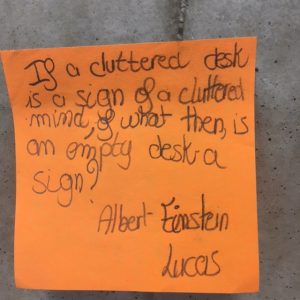 If a cluttered desk
is a sign of a cluttered
mind, of what then, is
an empty desk a
sign?
Albert Einstein
Lucas